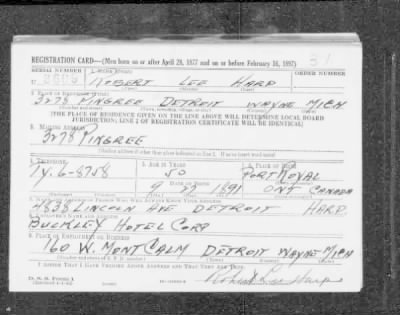 REGISTRATION CARD—(Men born on or after April 28, 1877 and on or before February 16, 1897)
SERIAL NUMBER 1. NAME (Print) ORDER NUMBER
U ROBERT LEE HARP
(First) (Middle) (Last)
2. PLACE OF RESIDENCE (Print)
3278 PINGREE DETROIT WAYNE MICH
(Number and street) (Town, township, village, or city) (County) (State)
[THE PLACE OF RESIDENCE GIVEN ON THE LINE ABOVE WILL DETERMINE LOCAL BOARD
JURISDICTION; LINE 2 OF REGISTRATION CERTIFICATE WILL BE IDENTICAL]
3. MAILING ADDRESS
3278 PINGREE
(Mailing address if other than place indicated on line 2. If same insert word same)
4. TELEPHONE 5. AGE IN YEARS 6. PLACE OF BIRTH
TY. 6-8758 50 PORT ROYAL
9 22 1891 ONT CANADA
LINCOLN AVE DETROIT HARP
BUCKLEY HOTEL CORP
8. PLACE OF EMPLOYMENT OR BUSINESS
160 W. MONTCALM DETROIT WAYNE MICH
(Number and street or R. F. D. number) (Town) (County) (State)
I AFFIRM THAT I HAVE VERIFIED ABOVE ANSWERS AND THAT THEY ARE TRUE.
D. S. S. Form 1
Robert Lee Harp